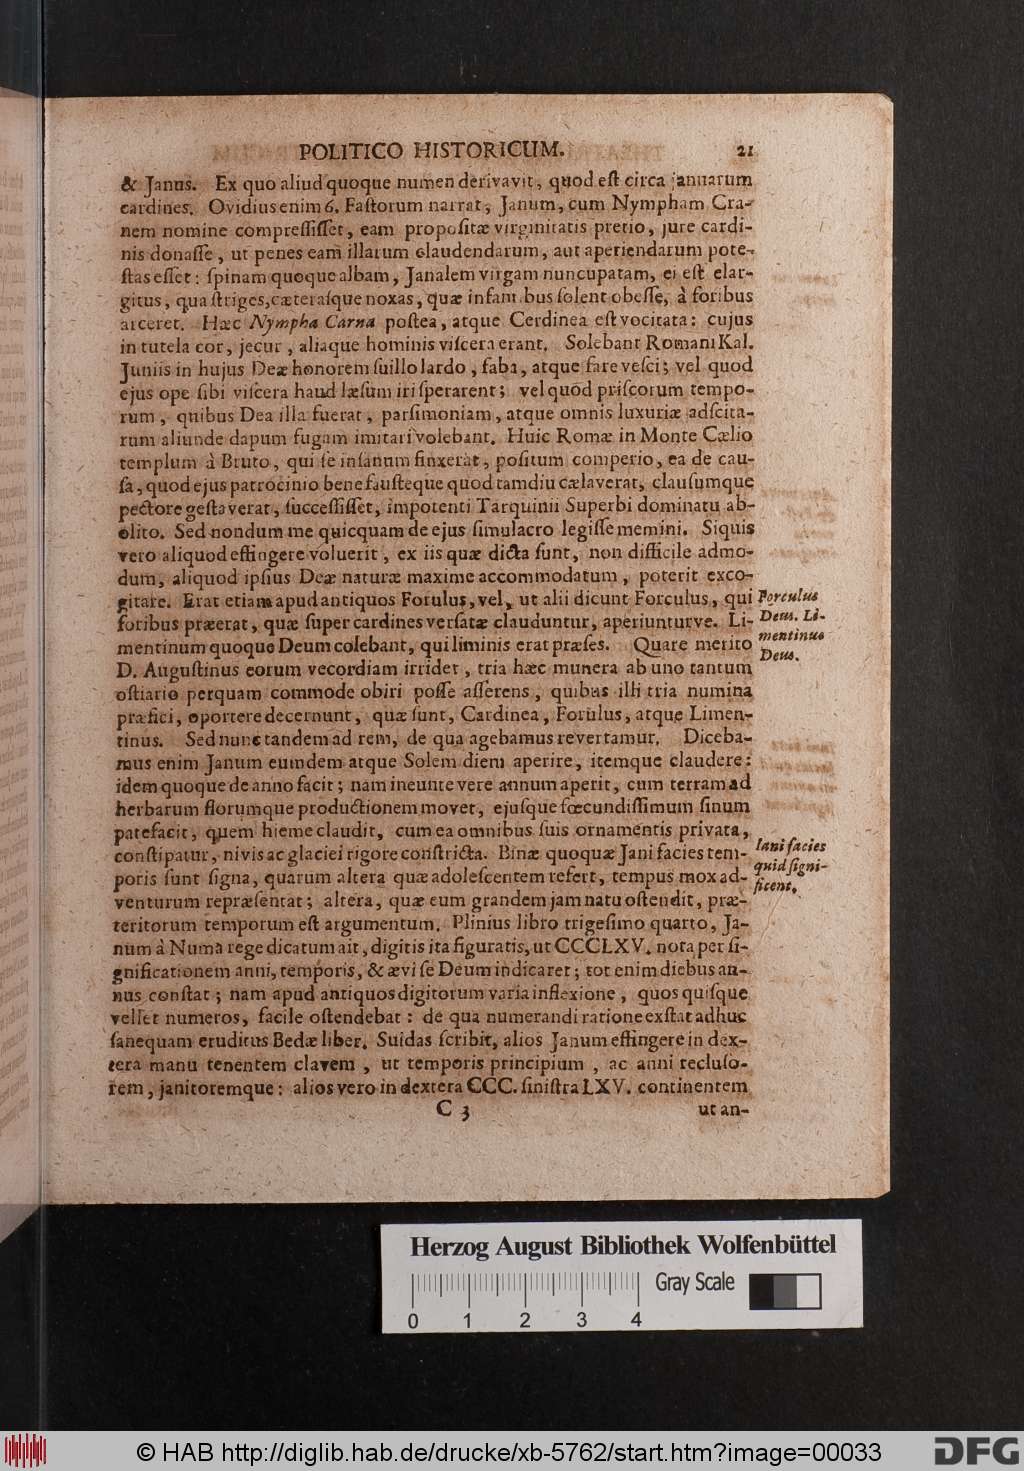 POLITICO HISTORICUM. 21
& Janus. Ex quo aliud quoque numen derivavit, quod eſt circa januarum
cardines. Ovidius enim 6. Faſtorum narrat, Janum, cum Nympham Cra-
nem nomine compreſſiſſet, eam propoſitæ virginitatis pretio, jure cardi-
nis donaſſe, ut penes eam illarum claudendarum, aut aperiendarum pote-
ſtas eſſet: ſpinam quoque albam, Janalem virgam nuncupatam, ei eſt elar-
gitus, qua ſtriges, cæteraſque noxas, quæ infantibus ſolent obeſſe, à foribus
arceret. Hæc Nympha Carna poſtea, atque Cerdinea eſt vocitata: cujus
in tutela cor, jecur, aliaque hominis viſcera erant. Solebant Romani Kal.
Juniis in hujus Deæ honorem ſuillo lardo, faba, atque fare veſci; vel quod
ejus ope ſibi viſcera haud læſum iri ſperarent; vel quòd priſcorum tempo-
rum, quibus Dea illa fuerat, parſimoniam, atque omnis luxuriæ adſcita-
rum aliunde dapum fugam imitari volebant. Huic Romæ in Monte Cælio
templum à Bruto, qui ſe inſanum finxerat, poſitum comperio, ea de cau-
ſa, quod ejus patrocinio bene fauſteque quod tamdiu cælaverat, clauſumque
pectore geſtaverat, ſucceſſiſſet, impotenti Tarquinii Superbi dominatu ab-
olito. Sed nondum me quicquam de ejus ſimulacro legiſſe memini. Siquis
vero aliquod effingere voluerit, ex iis quæ dicta ſunt, non difficile admo-
dum, aliquod ipſius Deæ naturæ maxime accommodatum, poterit exco-
gitare. Erat etiam apud antiquos Forulus, vel, ut alii dicunt Forculus, qui
foribus præerat, quæ ſuper cardines verſatæ clauduntur, aperiunturve. Li-
mentinum quoque Deum colebant, qui liminis erat præſes. Quare merito
D. Auguſtinus eorum vecordiam irridet, tria hæc munera ab uno tantum
oſtiario perquam commode obiri poſſe aſſerens, quibus illi tria numina
præfici, oportere decernunt, quæ ſunt, Cardinea, Forulus, atque Limen-
tinus. Sed nunc tandem ad rem, de qua agebamus revertamur. Diceba-
mus enim Janum eumdem atque Solem diem aperire, itemque claudere:
idem quoque de anno facit; nam ineunte vere annum aperit, cum terram ad
herbarum florumque productionem movet, ejuſque fœcundiſſimum ſinum
patefacit, quem hieme claudit, cum ea omnibus ſuis ornamentis privata,
conſtipatur, nivis ac glaciei rigore conſtricta. Binæ quoquæ Jani facies tem-
poris ſunt ſigna, quarum altera quæ adoleſcentem refert, tempus mox ad-
venturum repræſentat; altera, quæ eum grandem jam natu oſtendit, præ-
teritorum temporum eſt argumentum. Plinius libro trigeſimo quarto, Ja-
num à Numa rege dicatum ait, digitis ita figuratis, ut CCCLXV. nota per ſi-
gnificationem anni, temporis, & ævi ſe Deum indicaret; tot enim diebus an-
nus conſtat; nam apud antiquos digitorum varia inflexione, quos quiſque
vellet numeros, facile oſtendebat: de qua numerandi ratione exſtat adhuc
ſanequam eruditus Bedæ liber. Suidas ſcribit, alios Janum effingere in dex-
tera manu tenentem clavem, ut temporis principium, ac anni recluſo-
rem, janitoremque: alios vero in dextera CCC. ſiniſtra LXV. continentem
C 3 ut an-
Forculus
Deus. Li-
mentinus
Deus.
Iani facies
quid ſigni-
ficent.
Herzog August Bibliothek Wolfenbüttel
Gray Scale
0 1 2 3 4
© HAB http://diglib.hab.de/drucke/xb-5762/start.htm?image=00033
DFG